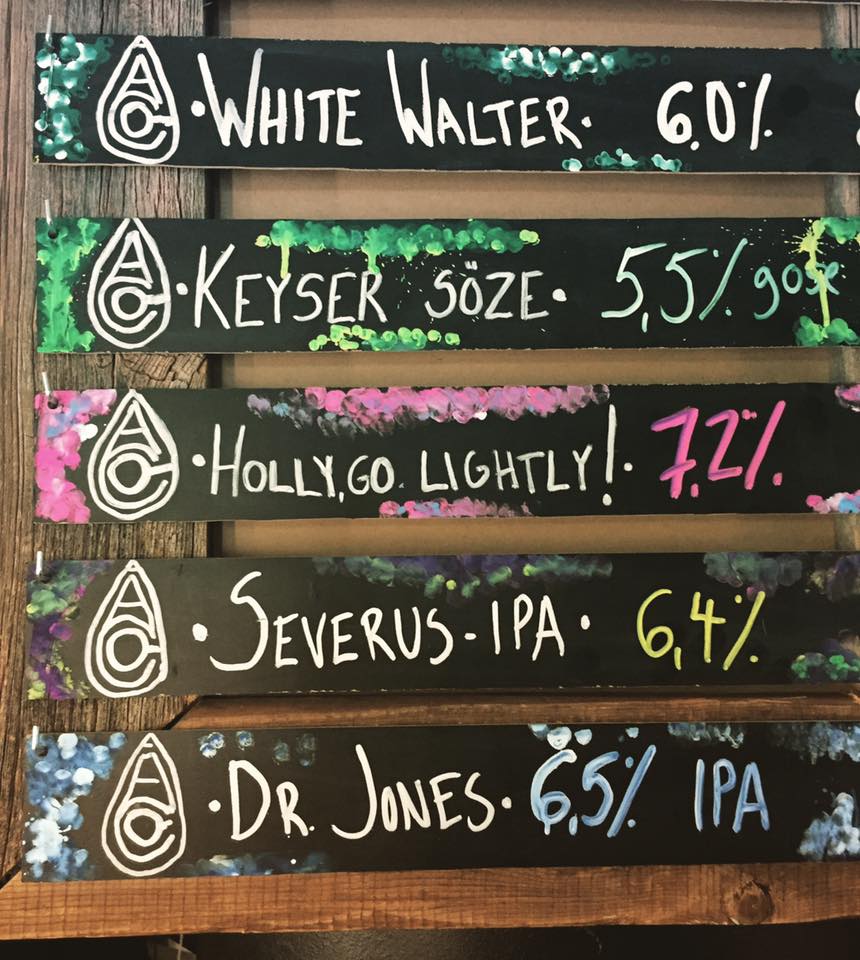 ACC • WHITE WALTER • 6.0%
ACC • KEYSER SÖZE • 5,5% gose
ACC • HOLLY, GO LIGHTLY! • 7.2%
ACC • SEVERUS - IPA • 6,4%
ACC • DR. JONES • 6,5% IPA